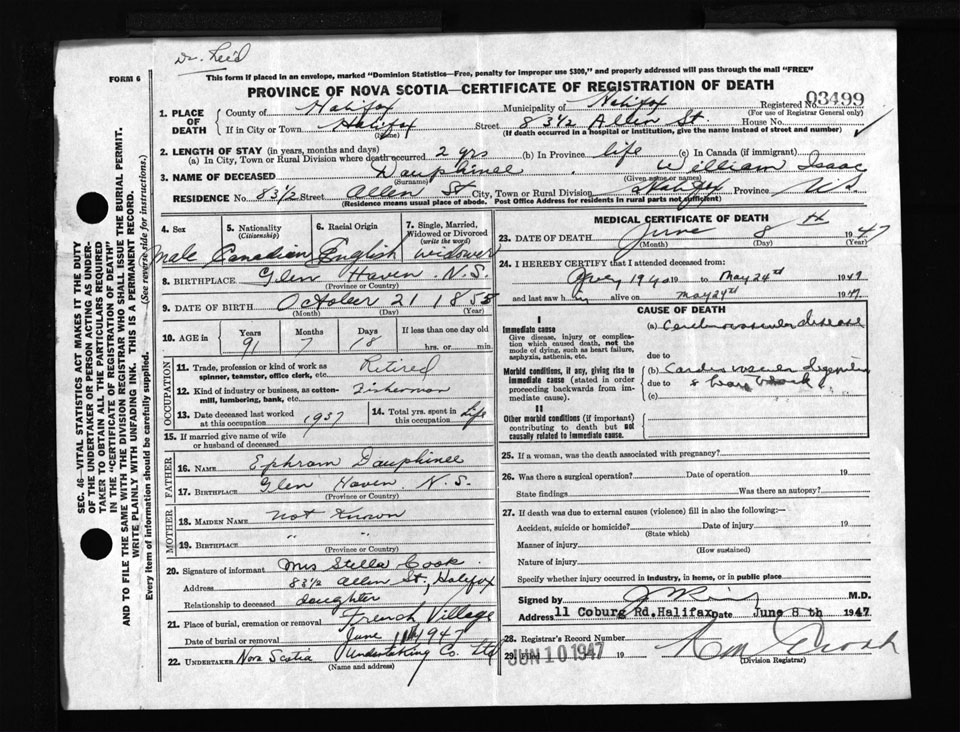 Dr. Reid
FORM 6
This form if placed in an envelope, marked "Dominion Statistics—Free, penalty for improper use $300," and properly addressed will pass through the mail "FREE"
PROVINCE OF NOVA SCOTIA—CERTIFICATE OF REGISTRATION OF DEATH
1. PLACE OF DEATH County of Halifax Municipality of Halifax Registered No. 03499
(For use of Registrar General only)
If in City or Town Halifax Street 83 1/2 Allen St. House No.
(Name) (If death occurred in a hospital or institution, give the name instead of street and number)
2. LENGTH OF STAY (in years, months and days)
(a) In City, Town or Rural Division where death occurred 2 yrs (b) In Province life (c) In Canada (if immigrant)
3. NAME OF DECEASED Dauphinee William Isaac
(Surname) (Given name or names)
RESIDENCE No. 83 1/2 Street Allen St City, Town or Rural Division Halifax Province N.S.
(Residence means usual place of abode. Post Office Address for residents in rural parts not sufficient)
4. Sex 5. Nationality (Citizenship) 6. Racial Origin 7. Single, Married, Widowed or Divorced (write the word)
male Canadian English widower
8. BIRTHPLACE Glen Haven N.S.
(Province or Country)
9. DATE OF BIRTH October 21 1855
(Month) (Day) (Year)
10. AGE in Years Months Days If less than one day old
91 7 18 hrs. or min.
OCCUPATION
11. Trade, profession or kind of work as spinner, teamster, office clerk, etc. Retired
12. Kind of industry or business, as cotton-mill, lumbering, bank, etc. Fisherman
13. Date deceased last worked at this occupation 1937 14. Total yrs. spent in this occupation Life
15. If married give name of wife or husband of deceased
FATHER
16. NAME Ephram Dauphinee
17. BIRTHPLACE Glen Haven N.S.
(Province or Country)
MOTHER
18. MAIDEN NAME not Known
19. BIRTHPLACE " "
(Province or Country)
20. Signature of informant Mrs Stella Cook
Address 83 1/2 Allen St, Halifax
Relationship to deceased daughter
21. Place of burial, cremation or removal French Village
Date of burial or removal June 1947
22. UNDERTAKER Nova Scotia Undertaking Co. Ltd
(Name and address)
MEDICAL CERTIFICATE OF DEATH
23. DATE OF DEATH June 8th 1947
(Month) (Day) (Year)
24. I HEREBY CERTIFY that I attended deceased from:
1940 19 to May 24th 1947
and last saw h alive on May 24th 1947.
CAUSE OF DEATH
I
Immediate cause
Give disease, injury or complication which caused death, not the mode of dying, such as heart failure, asphyxia, asthenia, etc.
(a) Cerebrovascular disease
due to
Morbid conditions, if any, giving rise to immediate cause (stated in order proceeding backwards from immediate cause).
(b) Cardiovascular
due to
(c)
II
Other morbid conditions (if important) contributing to death but not causally related to immediate cause.
25. If a woman, was the death associated with pregnancy?
26. Was there a surgical operation? Date of operation 19
State findings Was there an autopsy?
27. If death was due to external causes (violence) fill in also the following:—
Accident, suicide or homicide? Date of injury 19
(State which)
Manner of injury
(How sustained)
Nature of injury
Specify whether injury occurred in industry, in home, or in public place
Signed by M.D.
Address 11 Coburg Rd. Halifax Date June 8th 1947
28. Registrar's Record Number
29. Filed JUN 10 1947 19
(Division Registrar)
SEC. 46—VITAL STATISTICS ACT MAKES IT THE DUTY
OF THE UNDERTAKER OR PERSON ACTING AS UNDERTAKER TO OBTAIN ALL THE PARTICULARS REQUIRED
IN THE "CERTIFICATE OF REGISTRATION OF DEATH"
AND TO FILE THE SAME WITH THE DIVISION REGISTRAR WHO SHALL ISSUE THE BURIAL PERMIT.
WRITE PLAINLY WITH UNFADING INK. THIS IS A PERMANENT RECORD.
Every item of information should be carefully supplied. (See reverse side for instructions.)